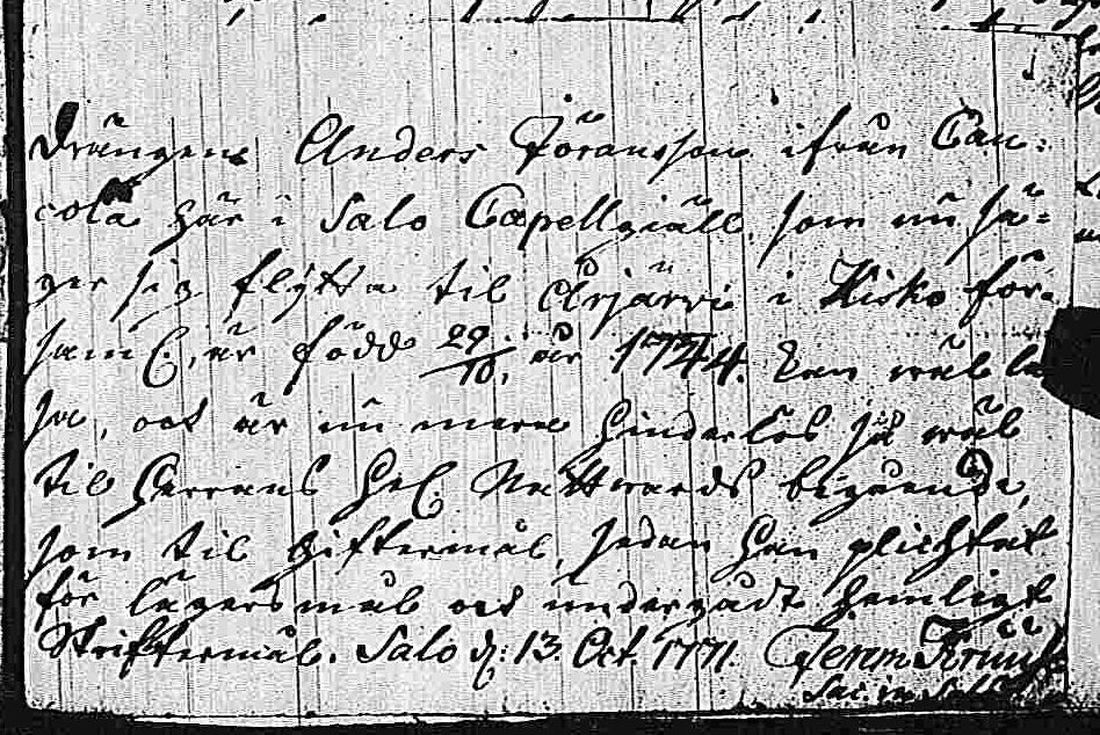 Drängen Anders Jöransson ifrån Can-
cola här i Salo Capellgiäll, som nu sä-
ger sig flytta til Arjärvi i Kisko för-
saml., är född 29/10, år 1744. kan väl lä-
sa, och är nu mera hinderlös så väl
til Herrans Hel. Nattvards begående,
som til giftermål, sedan han plichtat
för lägersmål och undergådt hemligt
Skriftermål. Salo d: 13. Oct. 1771. Jerem
Sac: in Salo